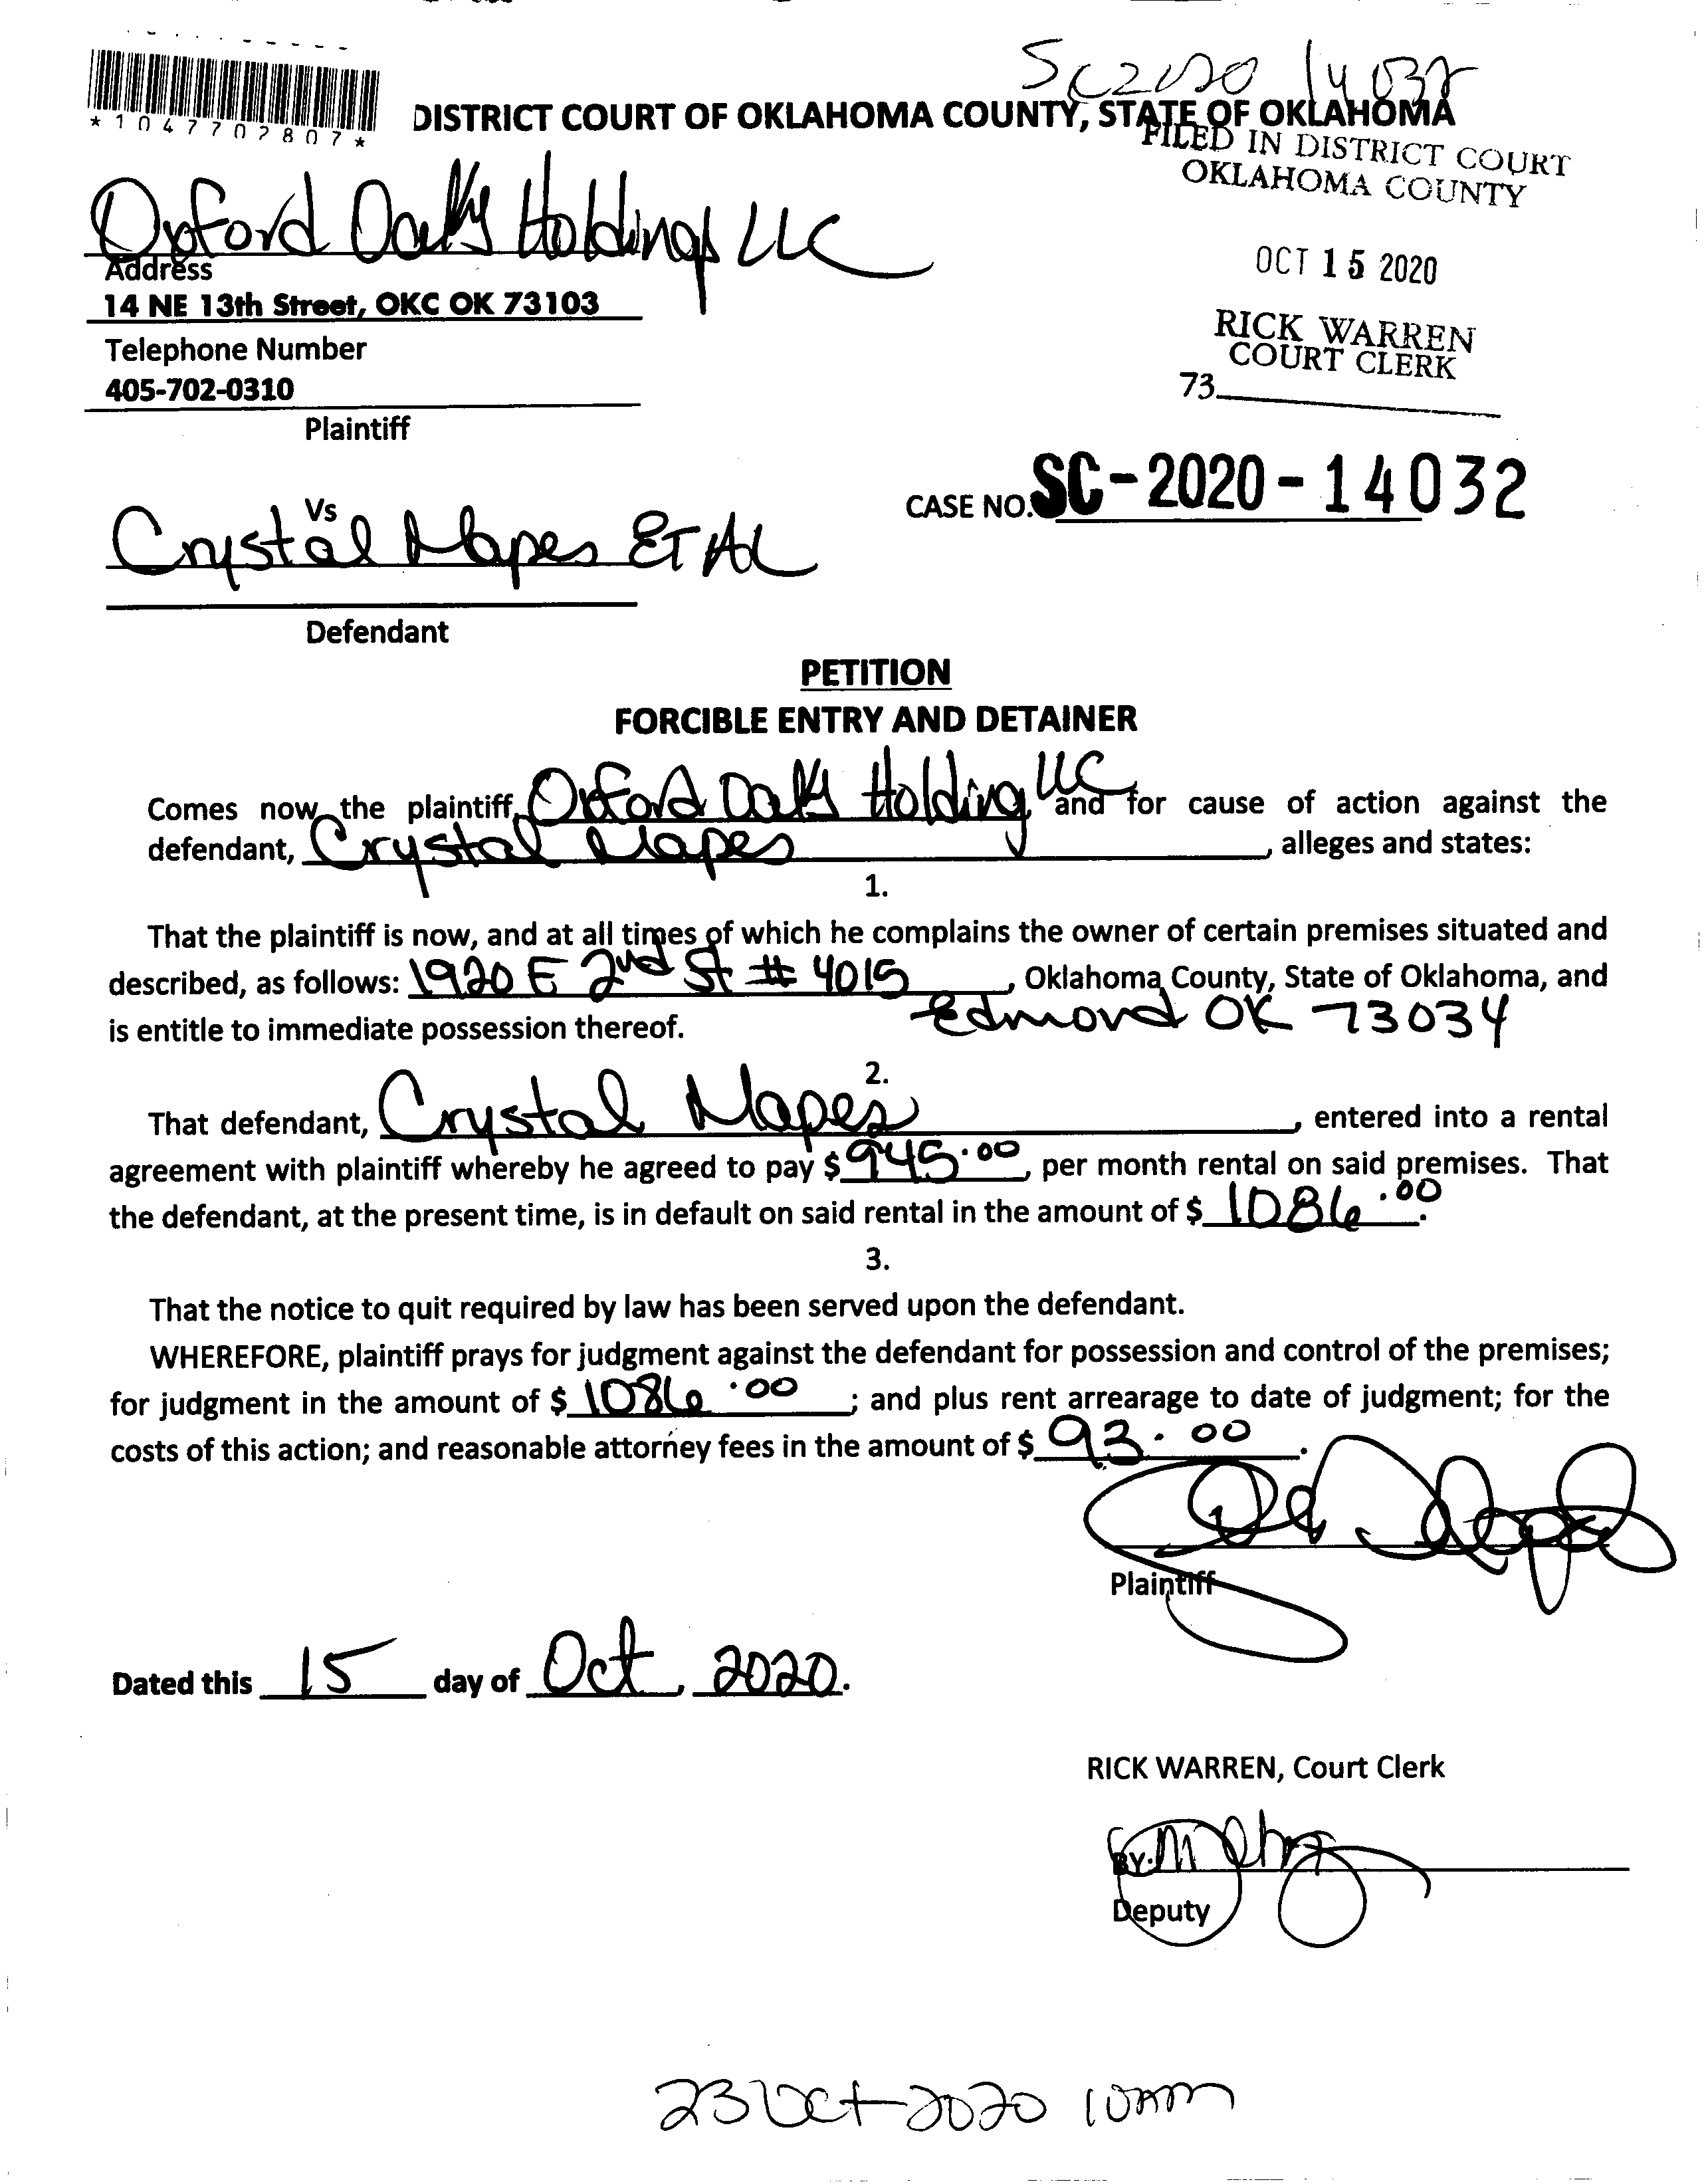 SC2020 14032
*1047702807*
DISTRICT COURT OF OKLAHOMA COUNTY, STATE OF OKLAHOMA
FILED IN DISTRICT COURT
OKLAHOMA COUNTY
Oxford Oaks Holdings LLC
Address
14 NE 13th Street, OKC OK 73103
OCT 15 2020
Telephone Number
405-702-0310
RICK WARREN
COURT CLERK
73
Plaintiff
CASE NO. SC-2020-14032
Vs
Crystal Mapes ET AL
Defendant
PETITION
FORCIBLE ENTRY AND DETAINER
Comes now the plaintiff, Oxford Oaks Holding LLC and for cause of action against the
defendant, Crystal Mapes, alleges and states:
1.
That the plaintiff is now, and at all times of which he complains the owner of certain premises situated and
described, as follows: 1920 E 2nd St # 4015, Oklahoma County, State of Oklahoma, and
is entitle to immediate possession thereof. Edmond OK 73034
2.
That defendant, Crystal Mapes, entered into a rental
agreement with plaintiff whereby he agreed to pay $ 945.00, per month rental on said premises. That
the defendant, at the present time, is in default on said rental in the amount of $ 1086.00.
3.
That the notice to quit required by law has been served upon the defendant.
WHEREFORE, plaintiff prays for judgment against the defendant for possession and control of the premises;
for judgment in the amount of $ 1086.00; and plus rent arrearage to date of judgment; for the
costs of this action; and reasonable attorney fees in the amount of $ 93.00.
Plaintiff
Dated this 15 day of Oct, 2020.
RICK WARREN, Court Clerk
BY:
Deputy
23 Oct 2020 10am